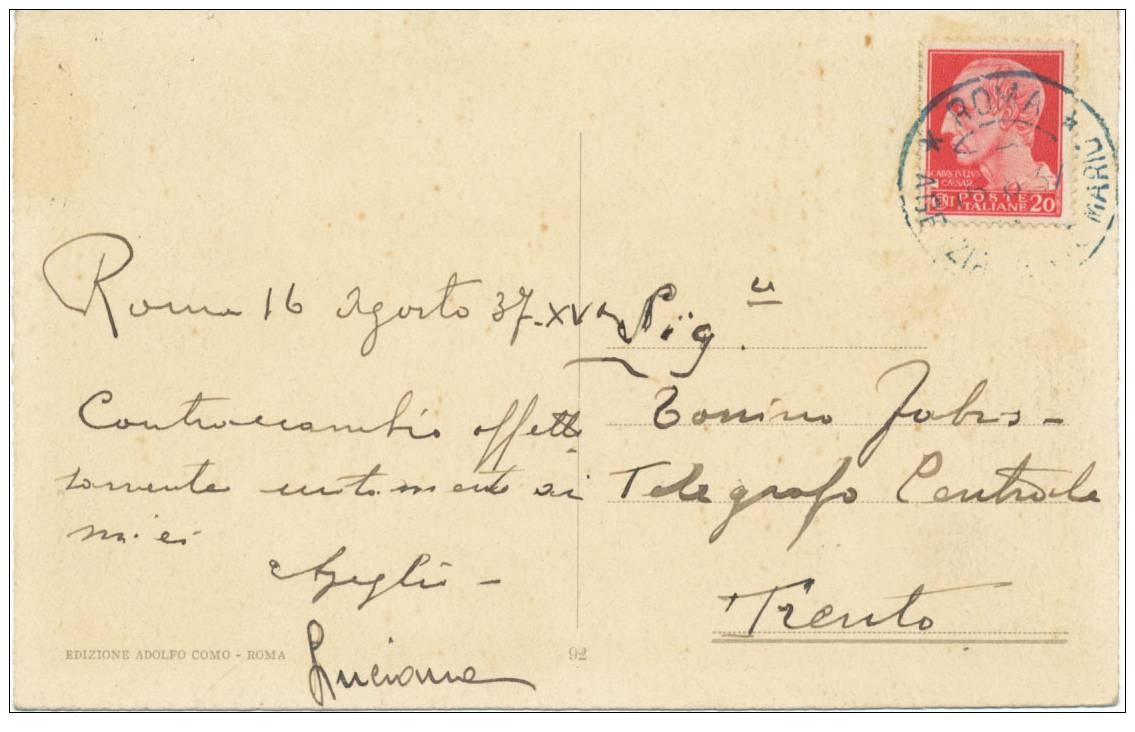 Roma 16 Agosto 37-XV
Contraccambio affettu
samente unitamente ai
miei
Luciana
EDIZIONE ADOLFO COMO - ROMA
92
ROMA
MARIO
CAIVS IVLIVS
CAESAR
CENT POSTE ITALIANE 20
Sig.
Tonino Fabis -
Telegrafo Centrale
Trento